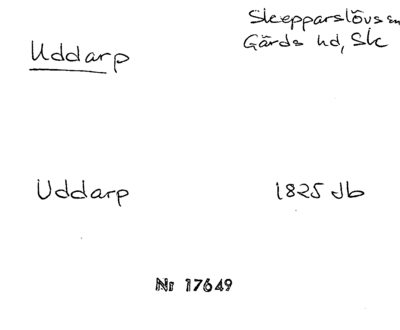 Uddarp
Skepparslövs sn
Gärds hd, Sk
Uddarp
1825 Jb
Nr 17649